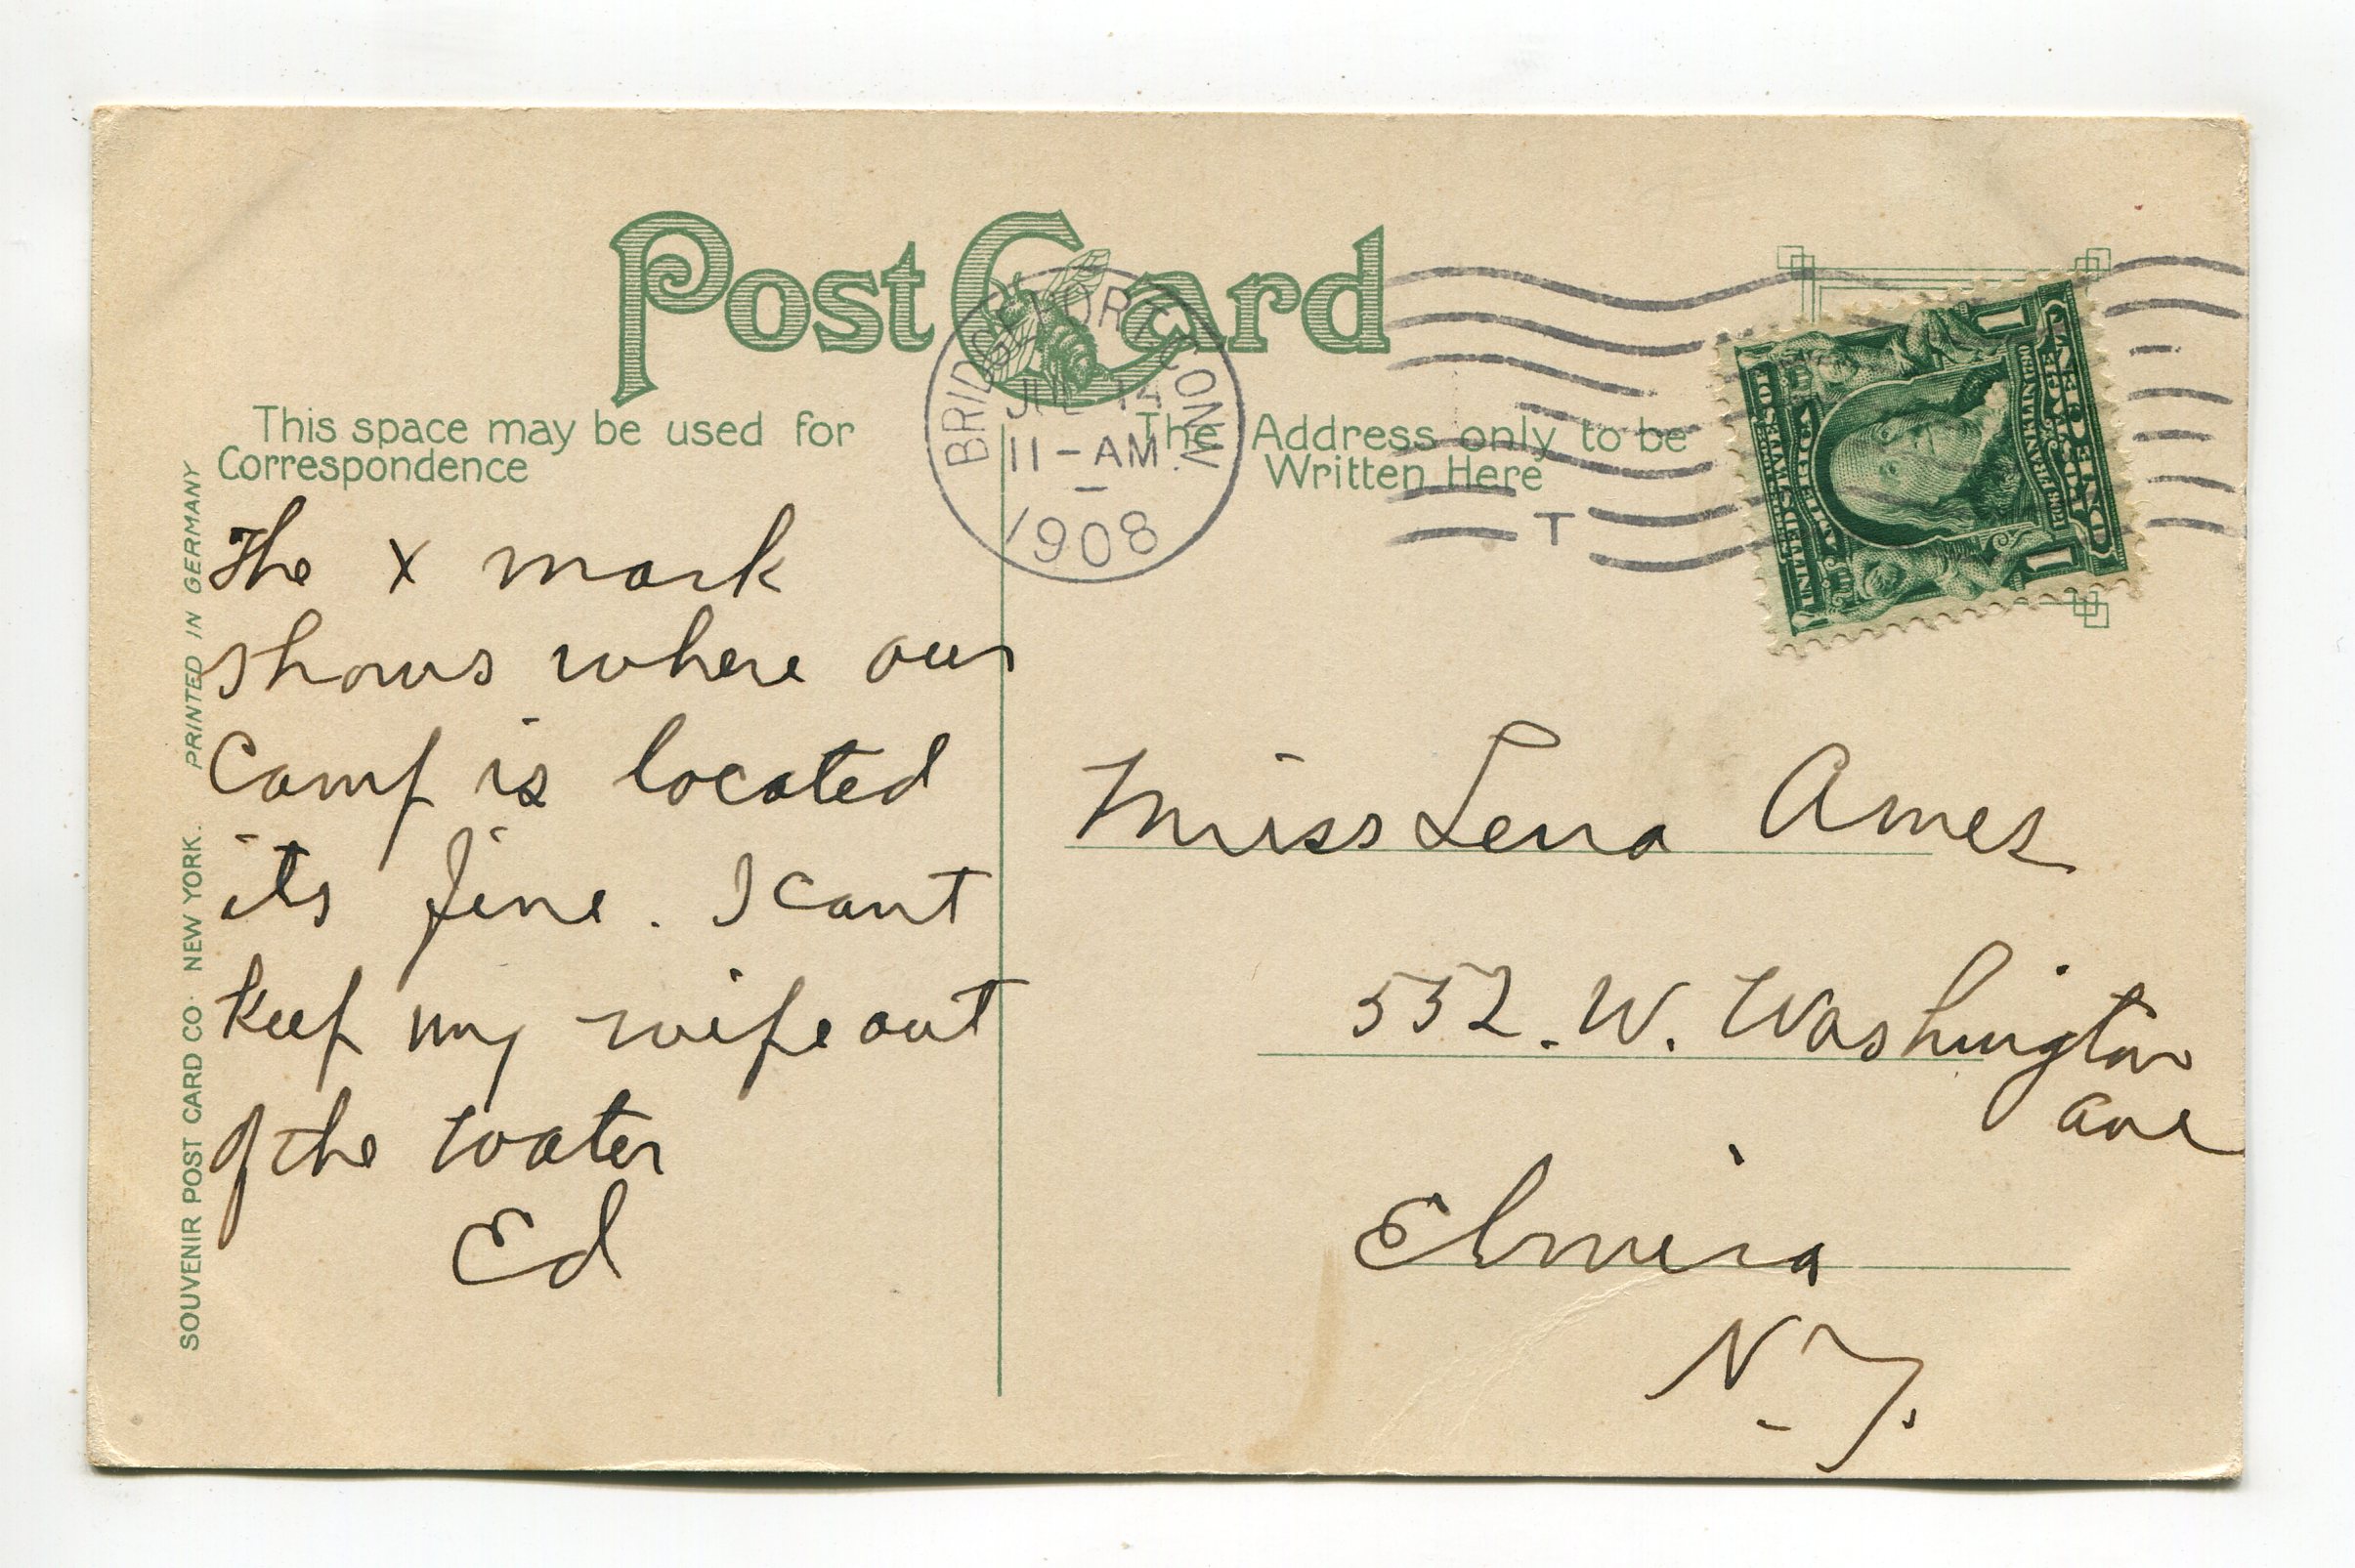 Post Card
This space may be used for
Correspondence
The Address only to be
Written Here
BRIDGEPORT, CONN.
JUL 14
11-AM
1908
T
The x mark
shows where our
Camp is located
its fine. I cant
keep my wife out
of the water
Ed
Miss Lena Ames
552. W. Washington
ave
Elmira
N. Y.
SOUVENIR POST CARD CO. NEW YORK. PRINTED IN GERMANY